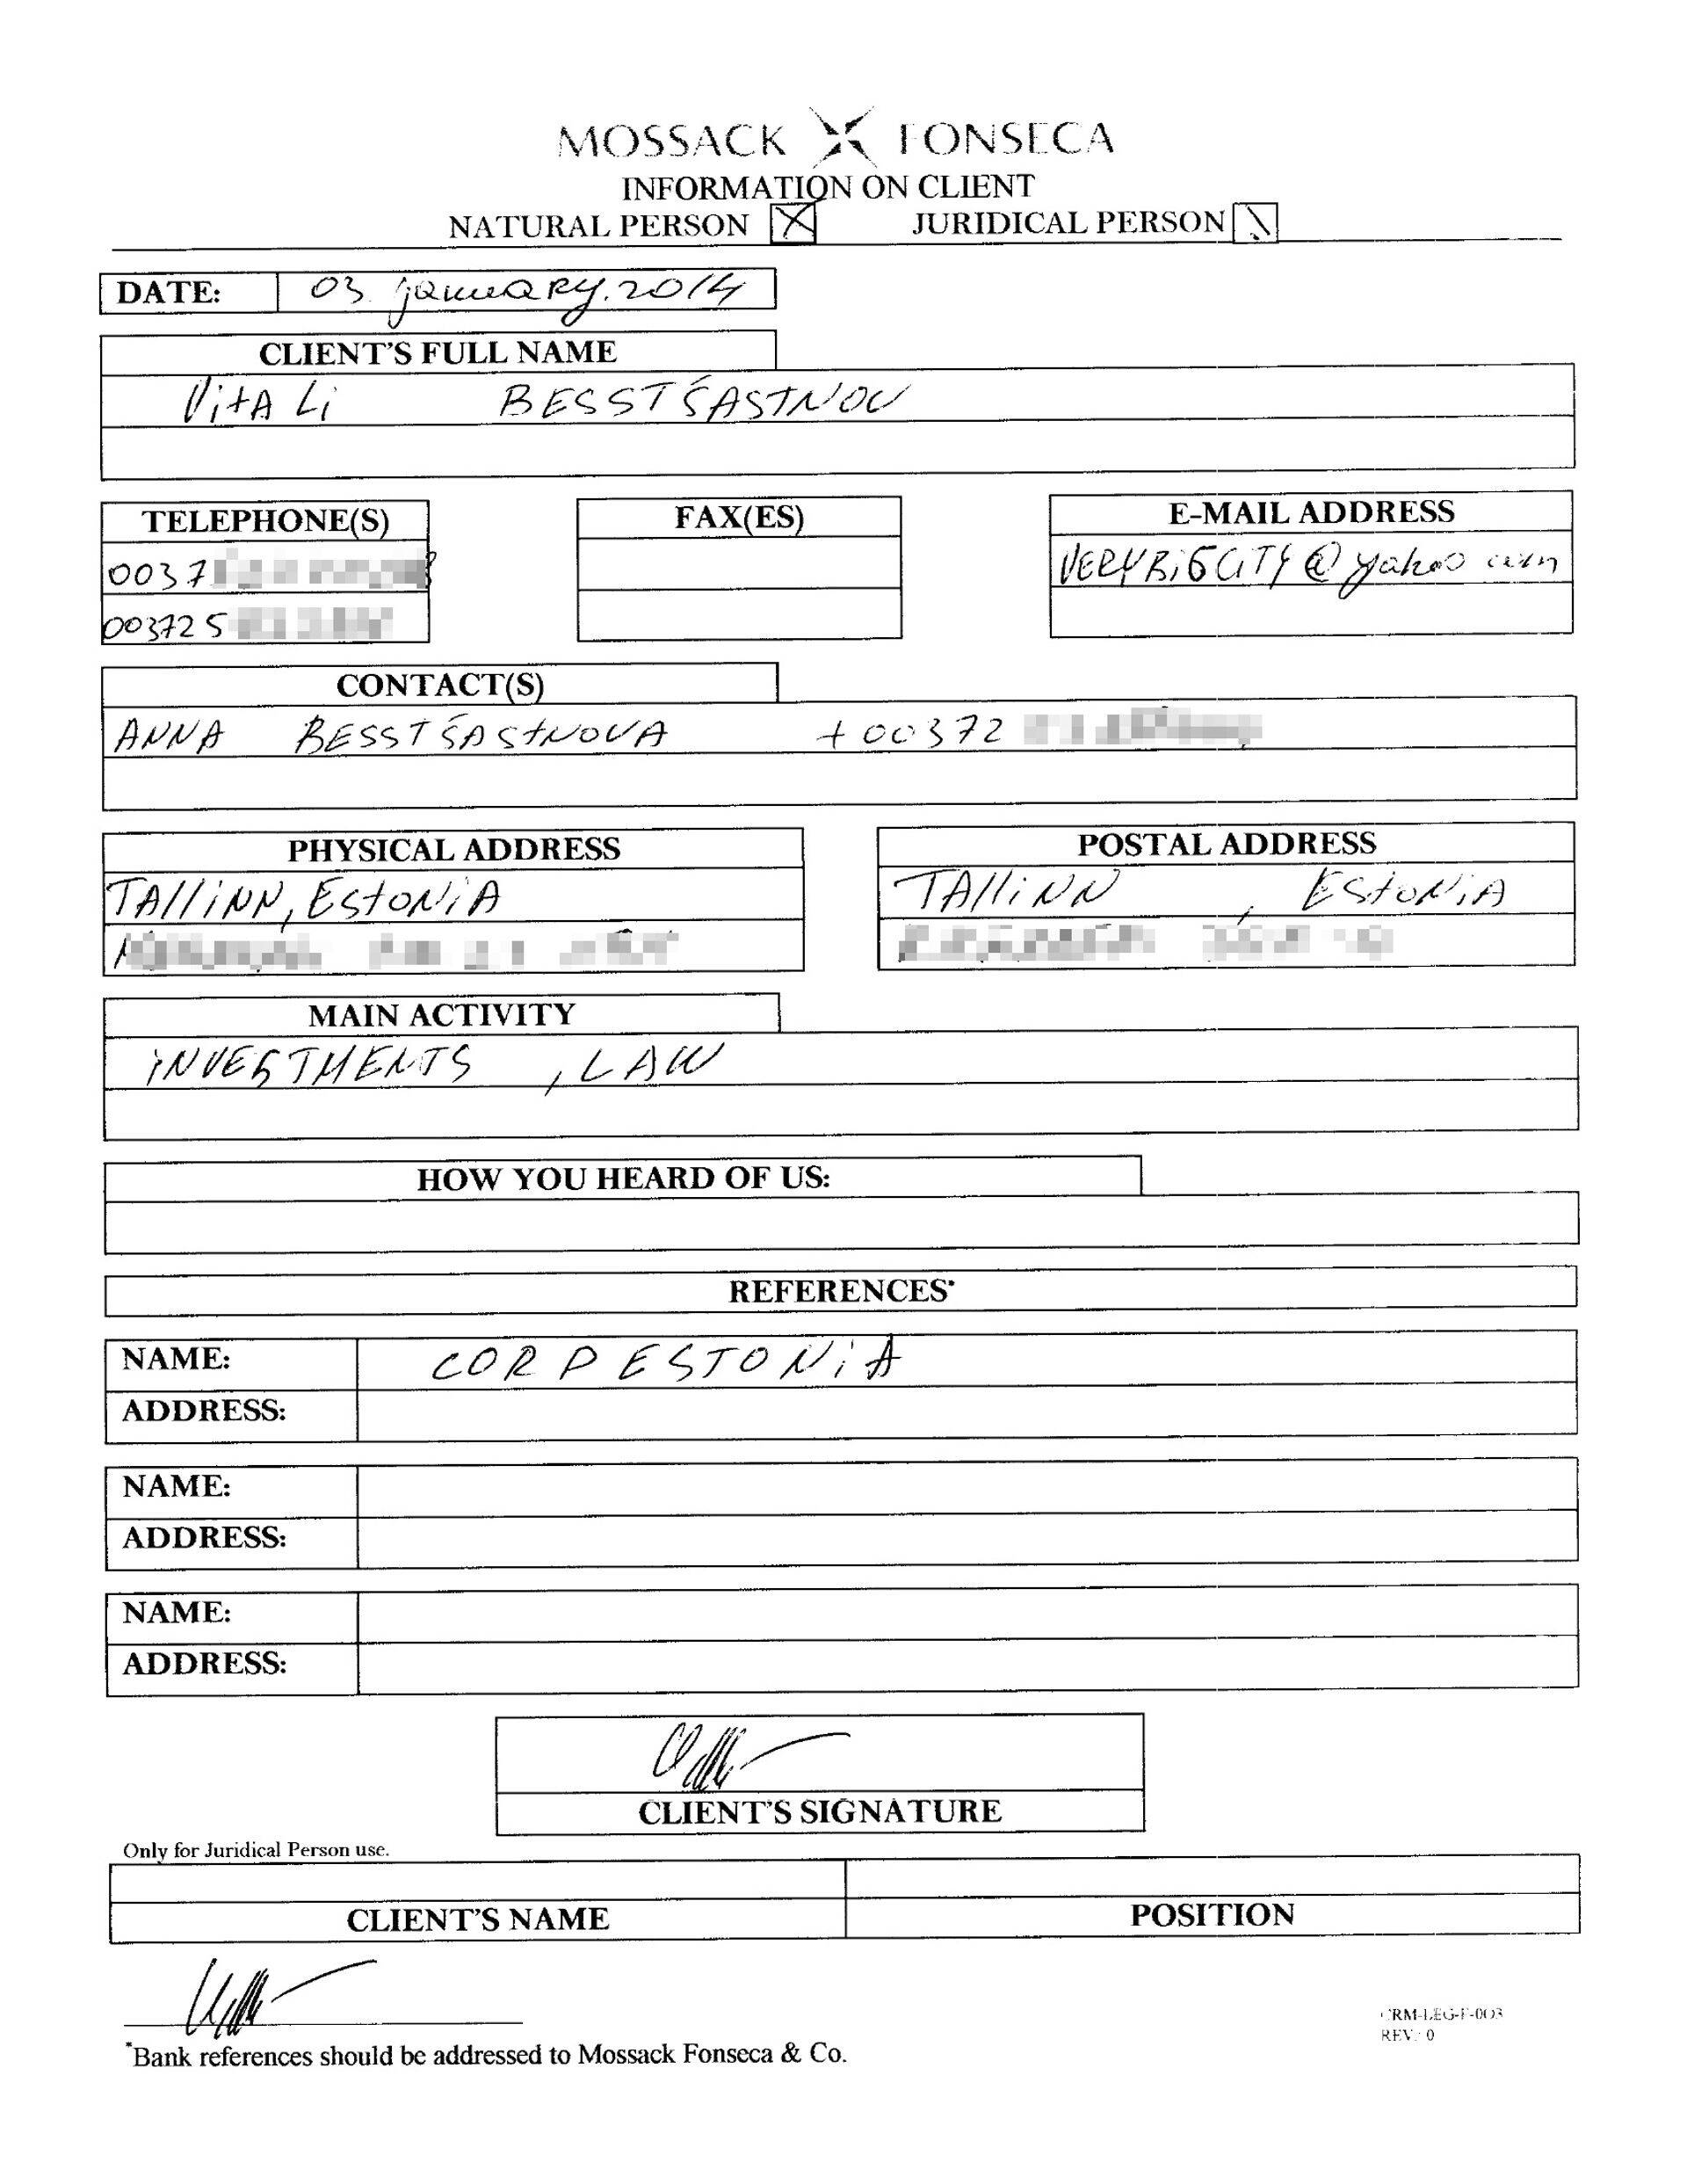 MOSSACK FONSECA
INFORMATION ON CLIENT
NATURAL PERSON JURIDICAL PERSON
DATE: 03 january.2014
CLIENT'S FULL NAME
VitALi BESSTŠASTNOV
TELEPHONE(S) FAX(ES) E-MAIL ADDRESS
0037 VERYBiGCiTY@yahoo com
003725
CONTACT(S)
ANNA BESSTŠAStNOVA +00372
PHYSICAL ADDRESS POSTAL ADDRESS
TAlliNN, EStONiA TAlliNN , EStONiA
MAIN ACTIVITY
iNVESTMENTS , LAW
HOW YOU HEARD OF US:
REFERENCES*
NAME: CORPESTONiA
ADDRESS:
NAME:
ADDRESS:
NAME:
ADDRESS:
CLIENT'S SIGNATURE
Only for Juridical Person use.
CLIENT'S NAME POSITION
CRM-LEG-F-003
REV.: 0
*Bank references should be addressed to Mossack Fonseca & Co.